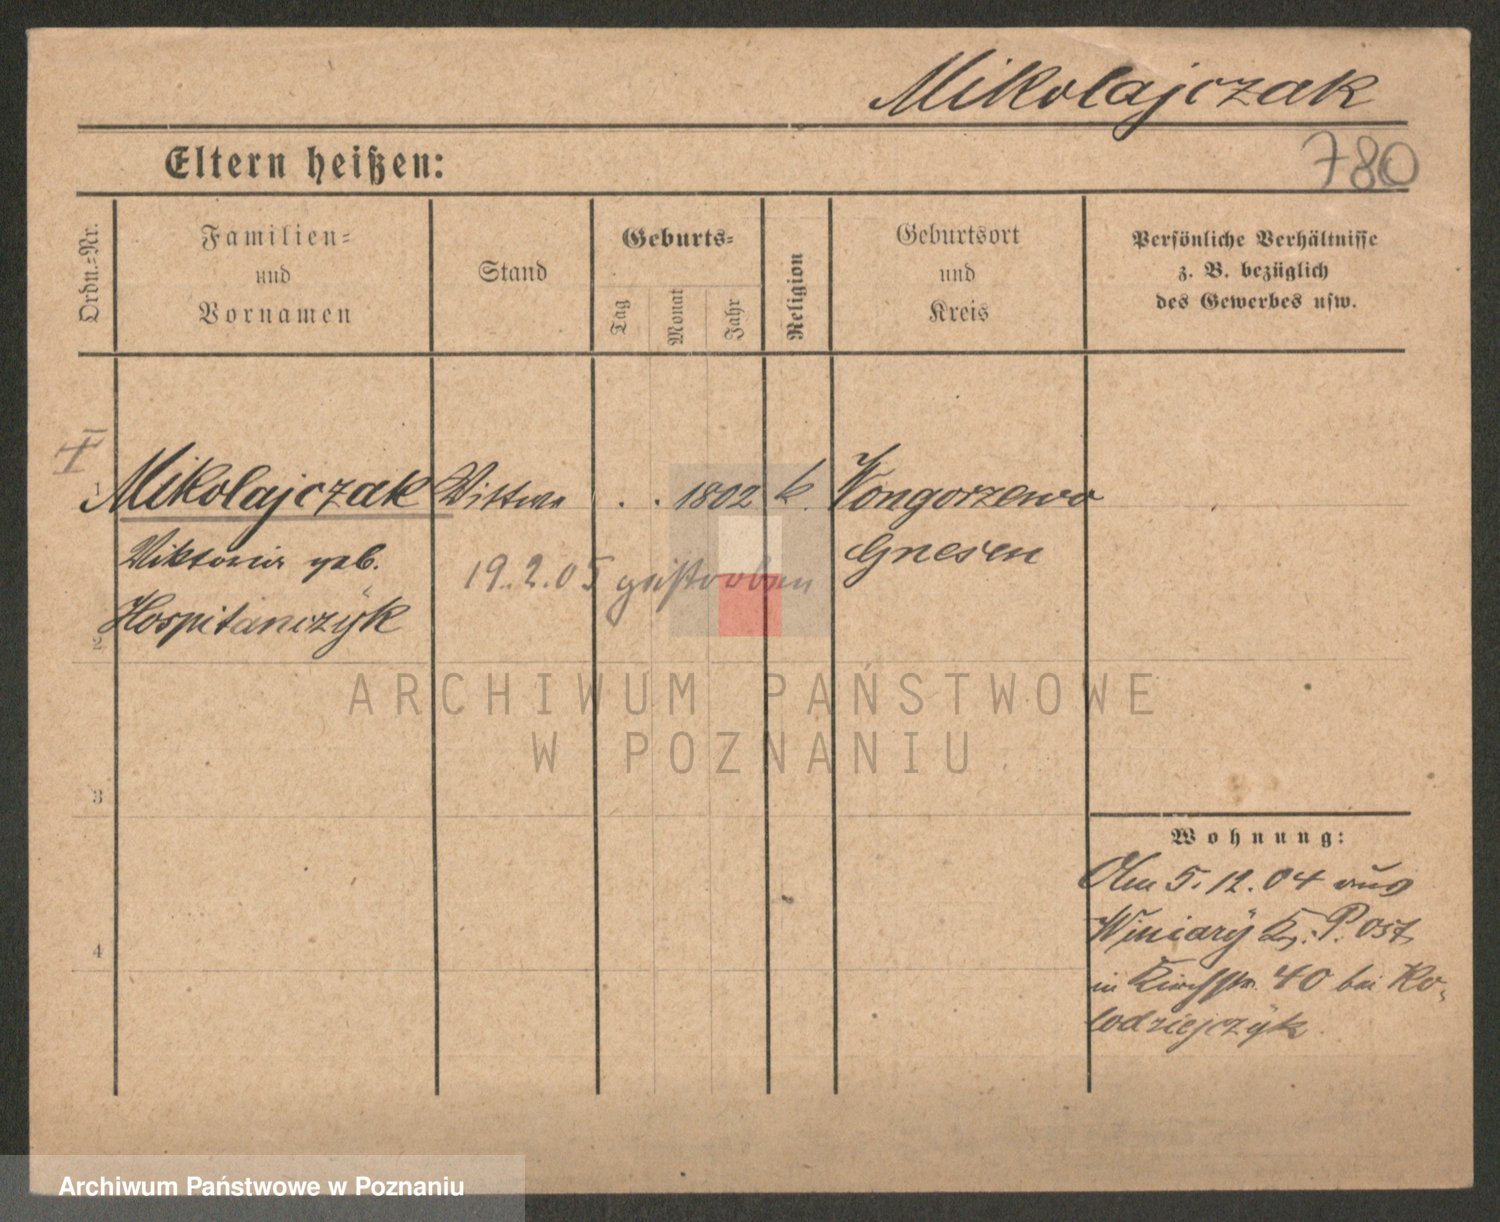 Mikolajczak
Eltern heißen:
780
Ordn.-Nr.
Familien-
und
Vornamen
Stand
Geburts-
Tag
Monat
Jahr
Religion
Geburtsort
und
Kreis
Persönliche Verhältnisse
z. B. bezüglich
des Gewerbes usw.
1 Mikolajczak Wittwe . . 1802 k. Wongorzewo
Viktoria geb. Gnesen
19.2.05 gestorben
Hospitanczÿk
2
3
4
Wohnung:
Am 5.12.04 aus
Winiarÿ Kr. P. Ost
in Kirchstr. 40 bei Ko-
lodziejczÿk
ARCHIWUM PAŃSTWOWE
W POZNANIU
Archiwum Państwowe w Poznaniu